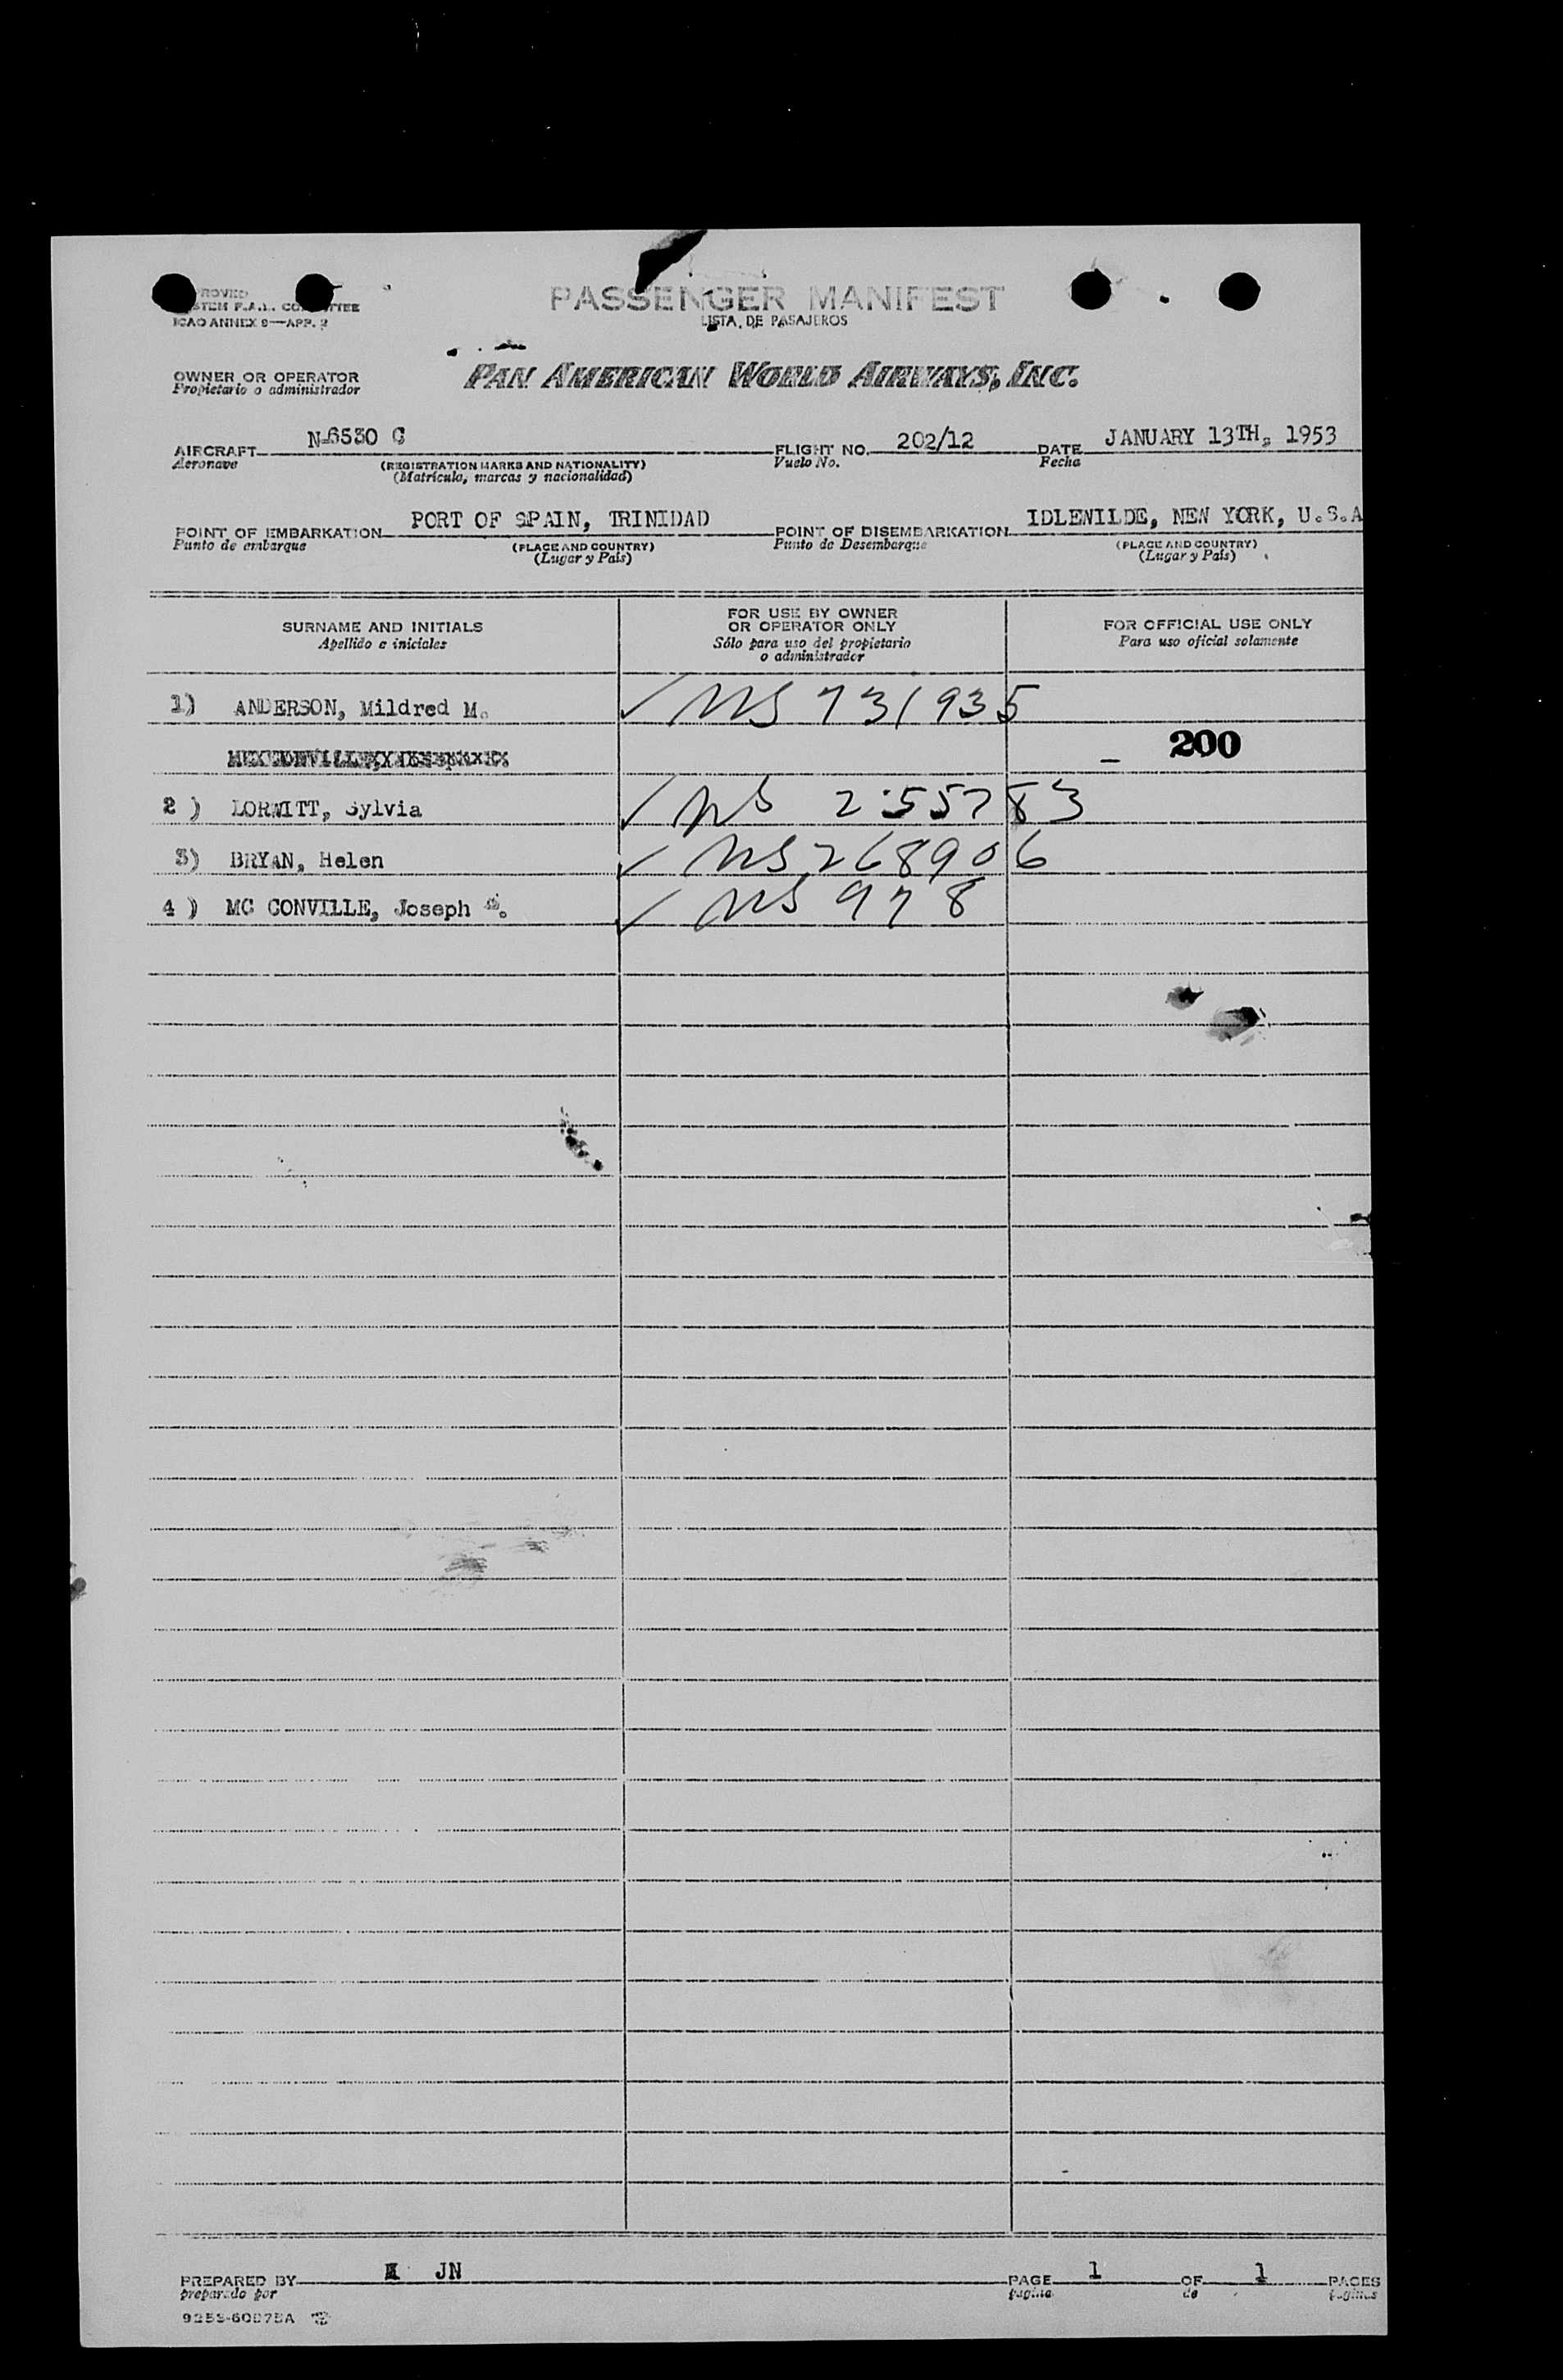 PASSENGER MANIFEST
LISTA DE PASAJEROS
ICAO ANNEX 9—APP. 2
OWNER OR OPERATOR
Propietario o administrador
PAN AMERICAN WORLD AIRWAYS, INC.
AIRCRAFT N-6530 C FLIGHT NO. 202/12 DATE JANUARY 13TH, 1953
Aeronave (REGISTRATION MARKS AND NATIONALITY) Vuelo No. Fecha
(Matrícula, marcas y nacionalidad)
POINT OF EMBARKATION PORT OF SPAIN, TRINIDAD POINT OF DISEMBARKATION IDLEWILDE, NEW YORK, U.S.A
Punto de embarque (PLACE AND COUNTRY) Punto de Desembarque (PLACE AND COUNTRY)
(Lugar y País) (Lugar y País)
SURNAME AND INITIALS
Apellido e iniciales
FOR USE BY OWNER
OR OPERATOR ONLY
Sólo para uso del propietario
o administrador
FOR OFFICIAL USE ONLY
Para uso oficial solamente
1) ANDERSON, Mildred M. ✓ NS 731935
200
2 ) LORWITT, Sylvia ✓ NS 255783
3) BRYAN, Helen ✓ NS 268906
4 ) MC CONVILLE, Joseph ✓ NS 978
PREPARED BY JN PAGE 1 OF 1 PAGES
preparado por página de páginas